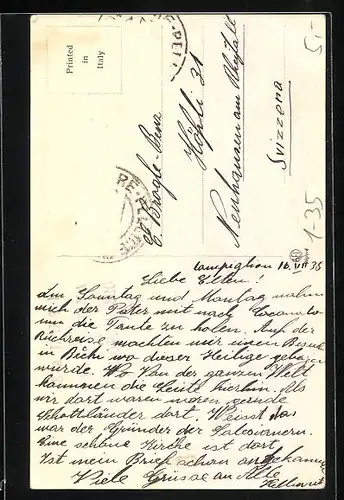 Printed
in
Italy
E. Brogle-Benz
Höfli 31
Neuhausen am Rheinfall
Svizzera
5,-
1-35
Campiglion 16. VII 35
Liebe Elten!
Am Sonntag und Montag nahm
mich der Pater mit nach Coconato
um die Tante zu holen. Auf der
Rückreise machten wir einen Besuch
in Bechi wo dieser Heilige geboren
wurde. Von der ganzen Welt
kommen die Leute hierhin. Als
wir dort waren waren gerade
Schottländer dort. Weisst das
war der Gründer der Salesianern.
Eine schöne Kirche ist dort.
Ist mein Brief schon angekommen
Viele Grüsse an Alle